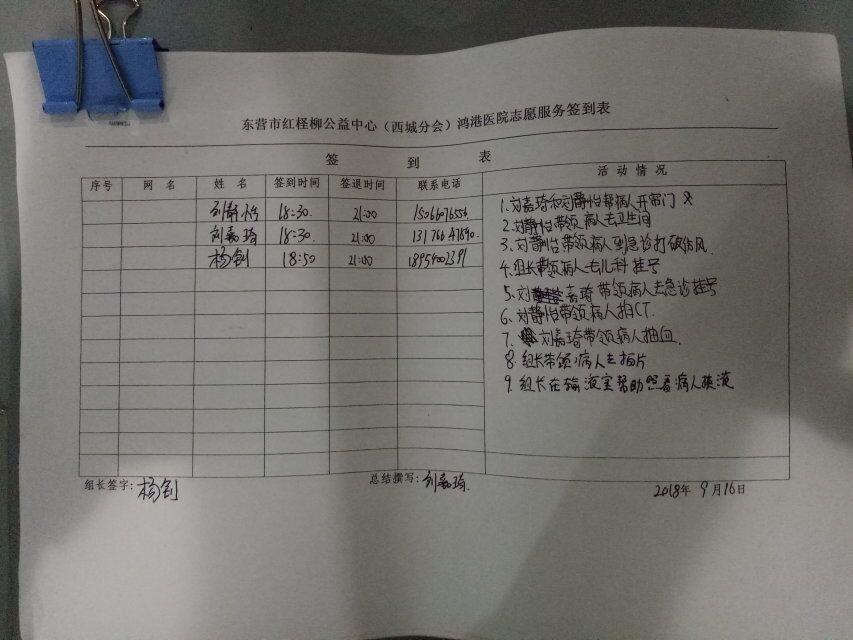 东营市红柽柳公益中心（西城分会）鸿港医院志愿服务签到表
签 到 表
活动情况
序号 网名 姓名 签到时间 签退时间 联系电话
刘静怡 18:30. 21:00
刘嘉琦 18:30. 21:00
杨钊 18:50 21:00
1.刘嘉琦和刘静怡帮病人开部门
2.刘静怡带领病人去卫生间
3.刘静怡带领病人到急诊打破伤风.
4.组长带领病人去儿科挂号
5.刘嘉琦带领病人去急诊挂号
6.刘静怡带领病人拍CT.
7.刘嘉琦带领病人抽血.
8.组长带领病人去拍片
9.组长在输液室帮助照看病人换液
组长签字：杨钊 总结撰写：刘嘉琦. 2018年9月16日